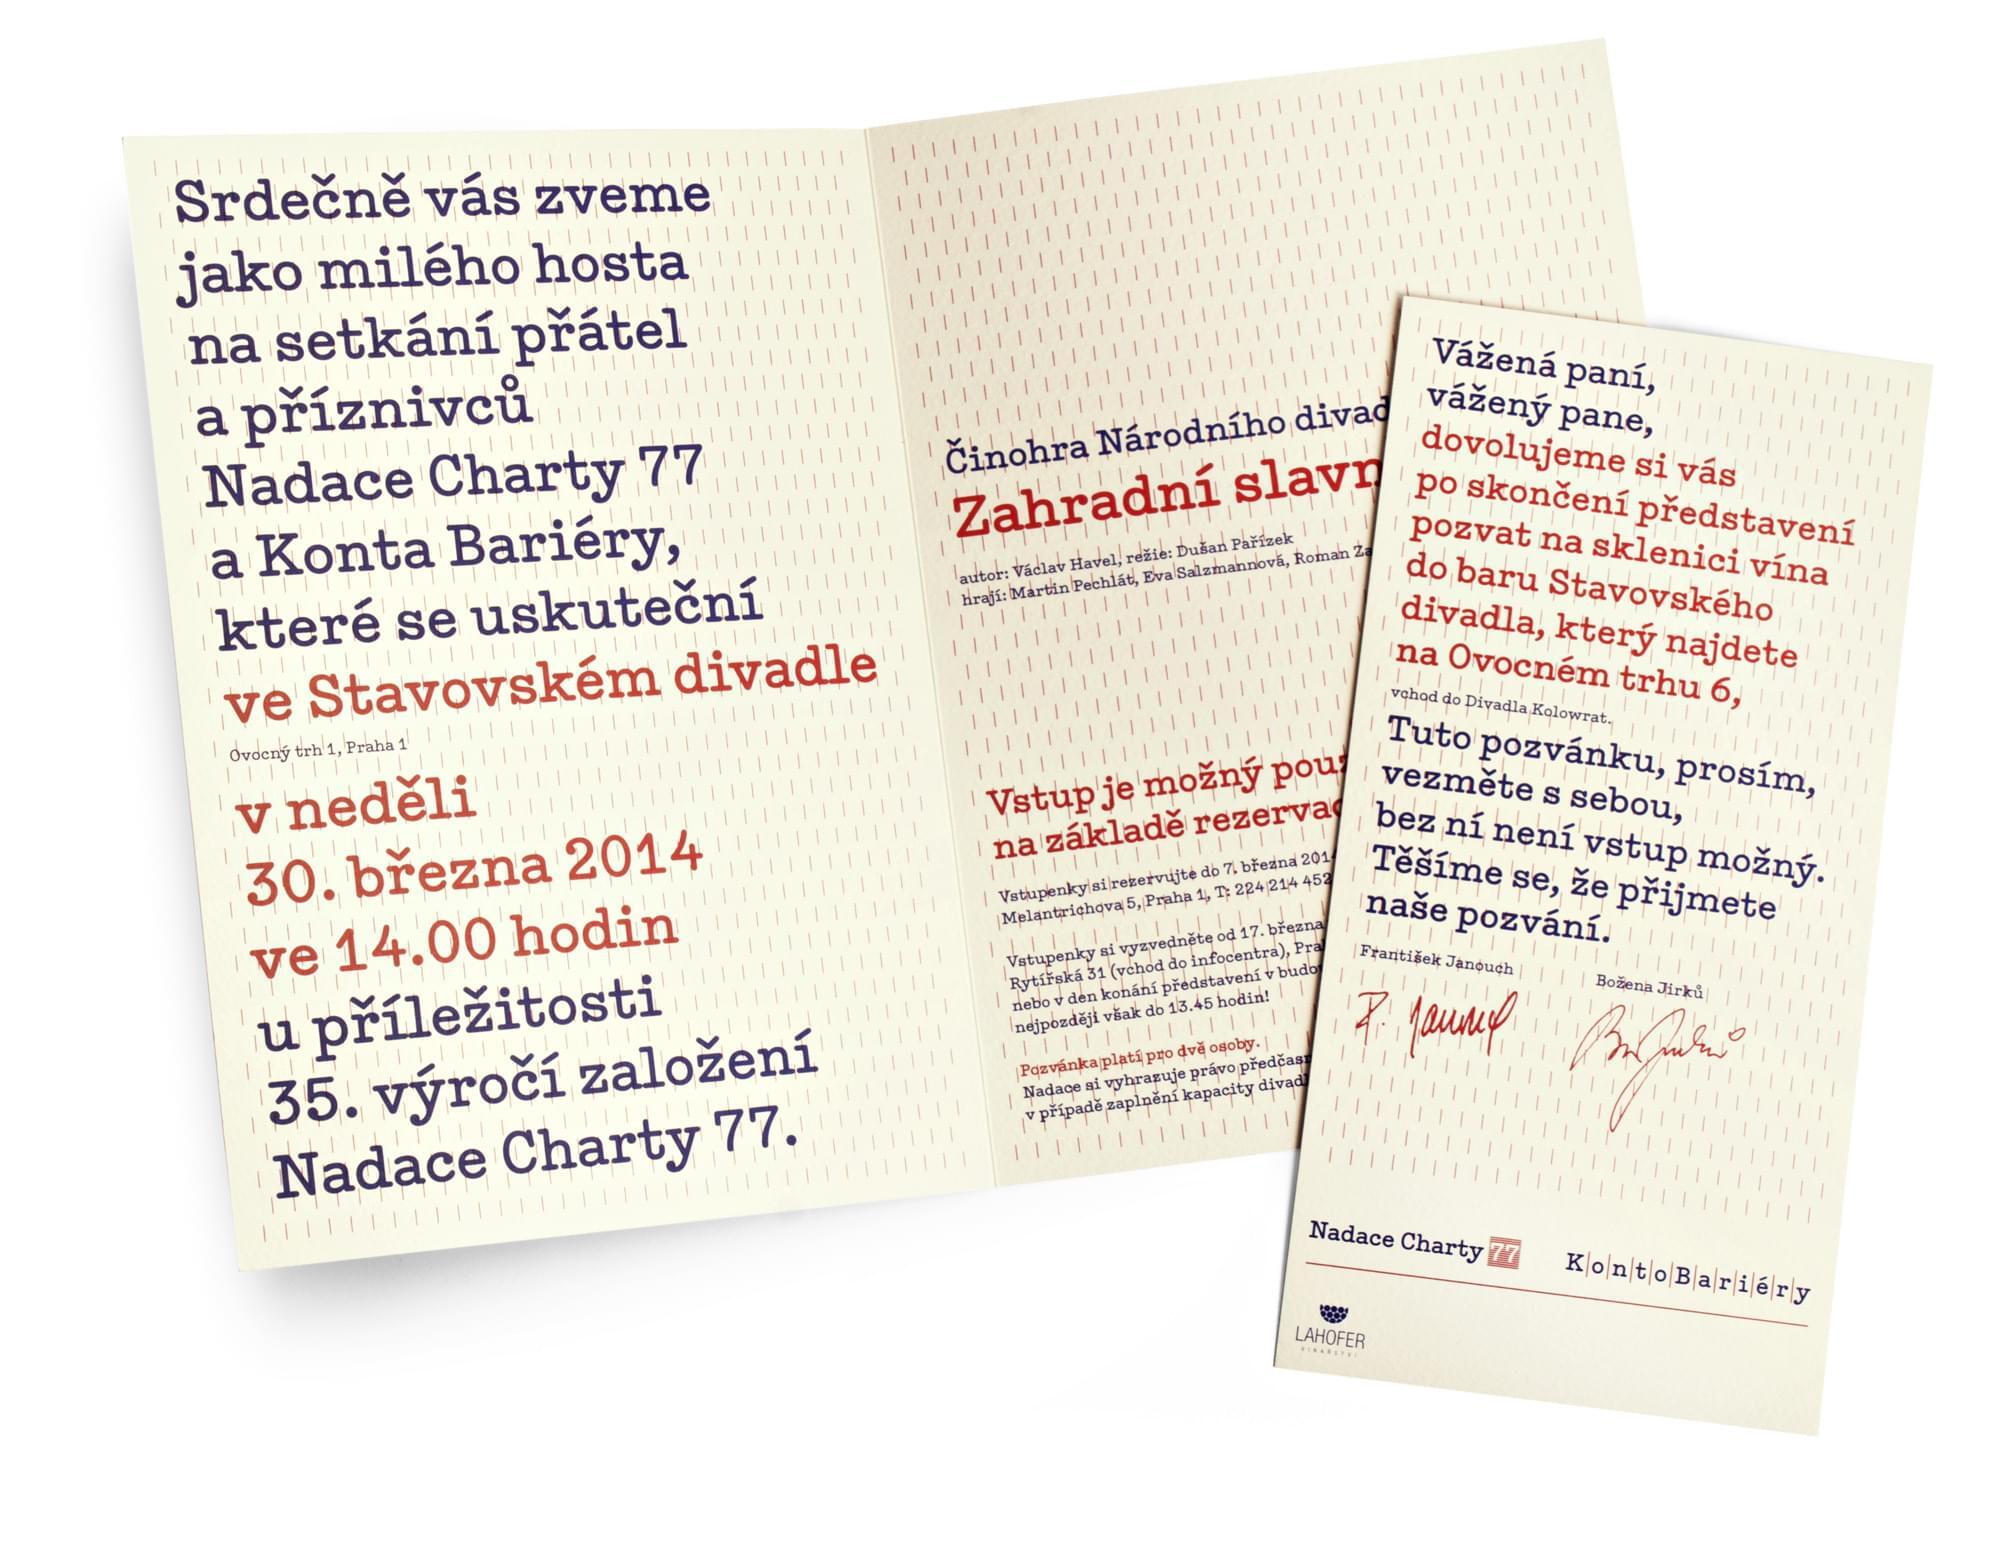 Srdečně vás zveme
jako milého hosta
na setkání přátel
a příznivců
Nadace Charty 77
a Konta Bariéry,
které se uskuteční
ve Stavovském divadle
Ovocný trh 1, Praha 1
v neděli
30. března 2014
ve 14.00 hodin
u příležitosti
35. výročí založení
Nadace Charty 77.
Činohra Národního
Zahradní
autor: Václav Havel, režie: Dušan Pařízek
hrají: Martin Pechlát, Eva Salzmannová, Roman
Vstup je možný
na základě
Vstupenky si rezervujte do 7. března 2014
Melantrichova 5, Praha 1, T: 224 214 452
Vstupenky si vyzvedněte od 17. března
Rytířská 31 (vchod do infocentra),
nebo v den konání představení v
nejpozději však do 13.45 hodin!
Pozvánka platí pro dvě osoby.
Nadace si vyhrazuje právo
v případě zaplnění kapacity
Vážená paní,
vážený pane,
dovolujeme si vás
po skončení představení
pozvat na sklenici vína
do baru Stavovského
divadla, který najdete
na Ovocném trhu 6,
vchod do Divadla Kolowrat.
Tuto pozvánku, prosím,
vezměte s sebou,
bez ní není vstup možný.
Těšíme se, že přijmete
naše pozvání.
František Janouch
Božena Jirků
Nadace Charty 77
KontoBariéry
LAHOFER
VINAŘSTVÍ